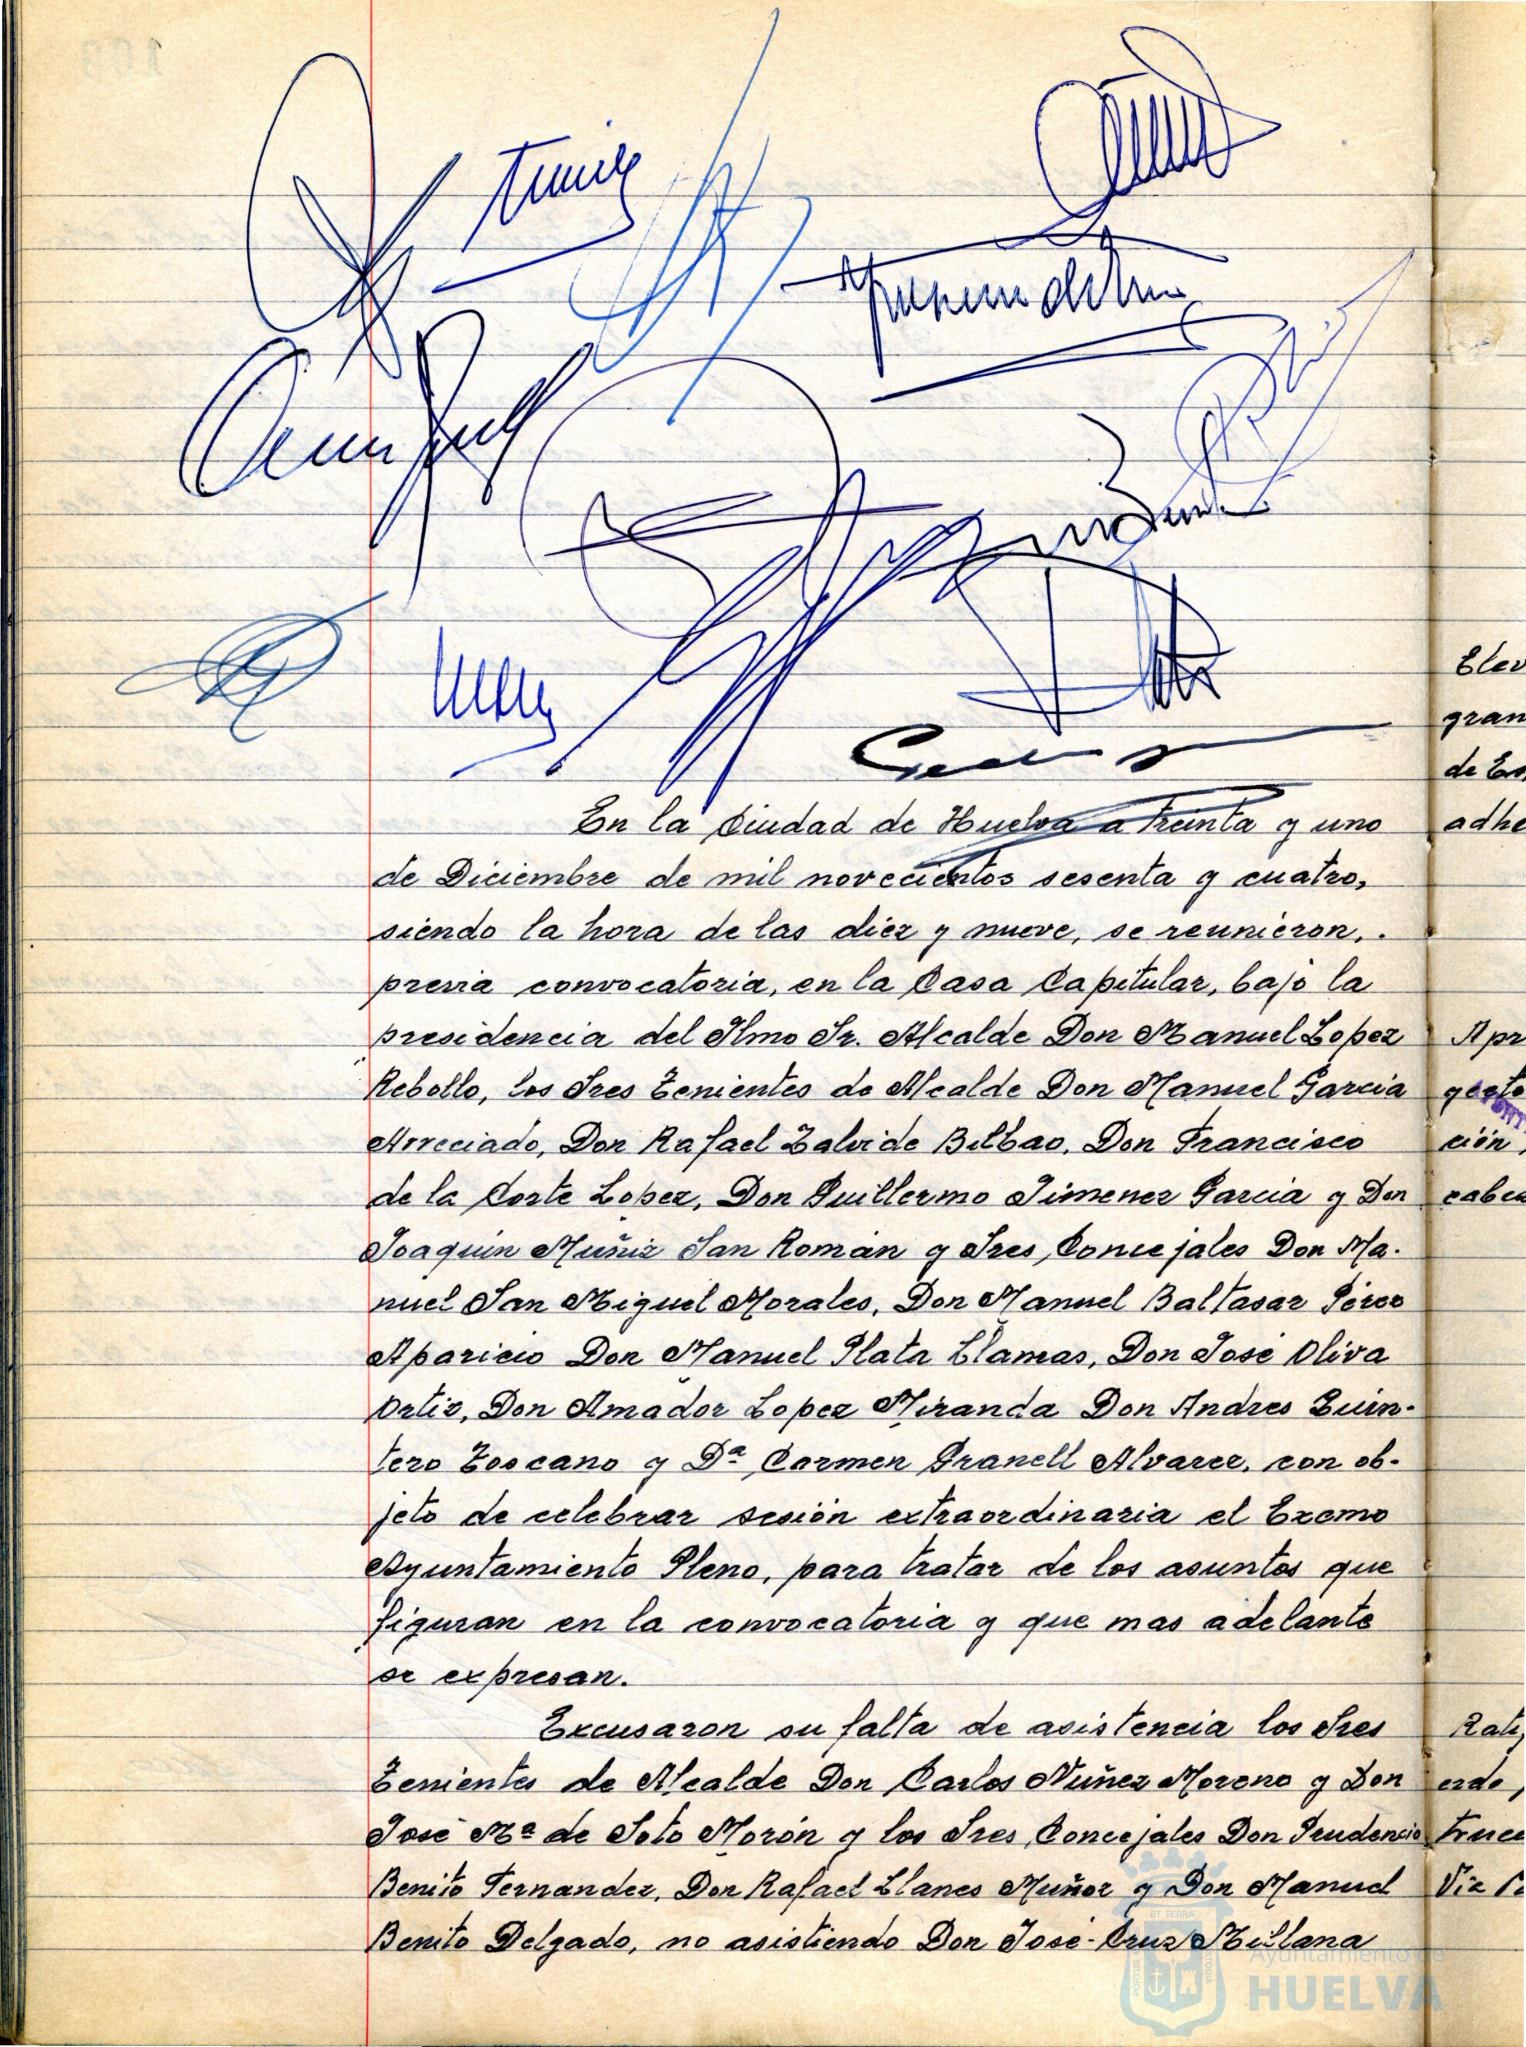 En la Ciudad de Huelva a treinta y uno
de Diciembre de mil novecientos sesenta y cuatro,
siendo la hora de las diez y nueve, se reunieron,
previa convocatoria, en la Casa Capitular, bajo la
presidencia del Ilmo Sr. Alcalde Don Manuel Lopez
Rebollo, los Sres Tenientes de Alcalde Don Manuel Garcia
Arreciado, Don Rafael Zalvide Bilbao, Don Francisco
de la Corte Lopez, Don Guillermo Jimenez Garcia y Don
Joaquin Muñiz San Román y Sres, Concejales Don Ma-
nuel San Miguel Morales, Don Manuel Baltasar Pérez
Aparicio Don Manuel Plata Llamas, Don José Oliva
Ortiz, Don Amador Lopez Miranda Don Andres Quin-
tero Toscano y Dª Carmen Granell Alvarez, con ob-
jeto de celebrar sesión extraordinaria el Excmo
Ayuntamiento Pleno, para tratar de los asuntos que
figuran en la convocatoria y que mas adelante
se expresan.
Excusaron su falta de asistencia los Sres
Tenientes de Alcalde Don Carlos Nuñez Moreno y Don
José Mª de Soto Morón y los Sres, Concejales Don Prudencio
Benito Fernandez, Don Rafael Llanes Muñoz y Don Manuel
Benito Delgado, no asistiendo Don José-Cruz Millana
Elev
gran
de Es
adhe
Apr
ción,
Ayuntamiento de
HUELVA